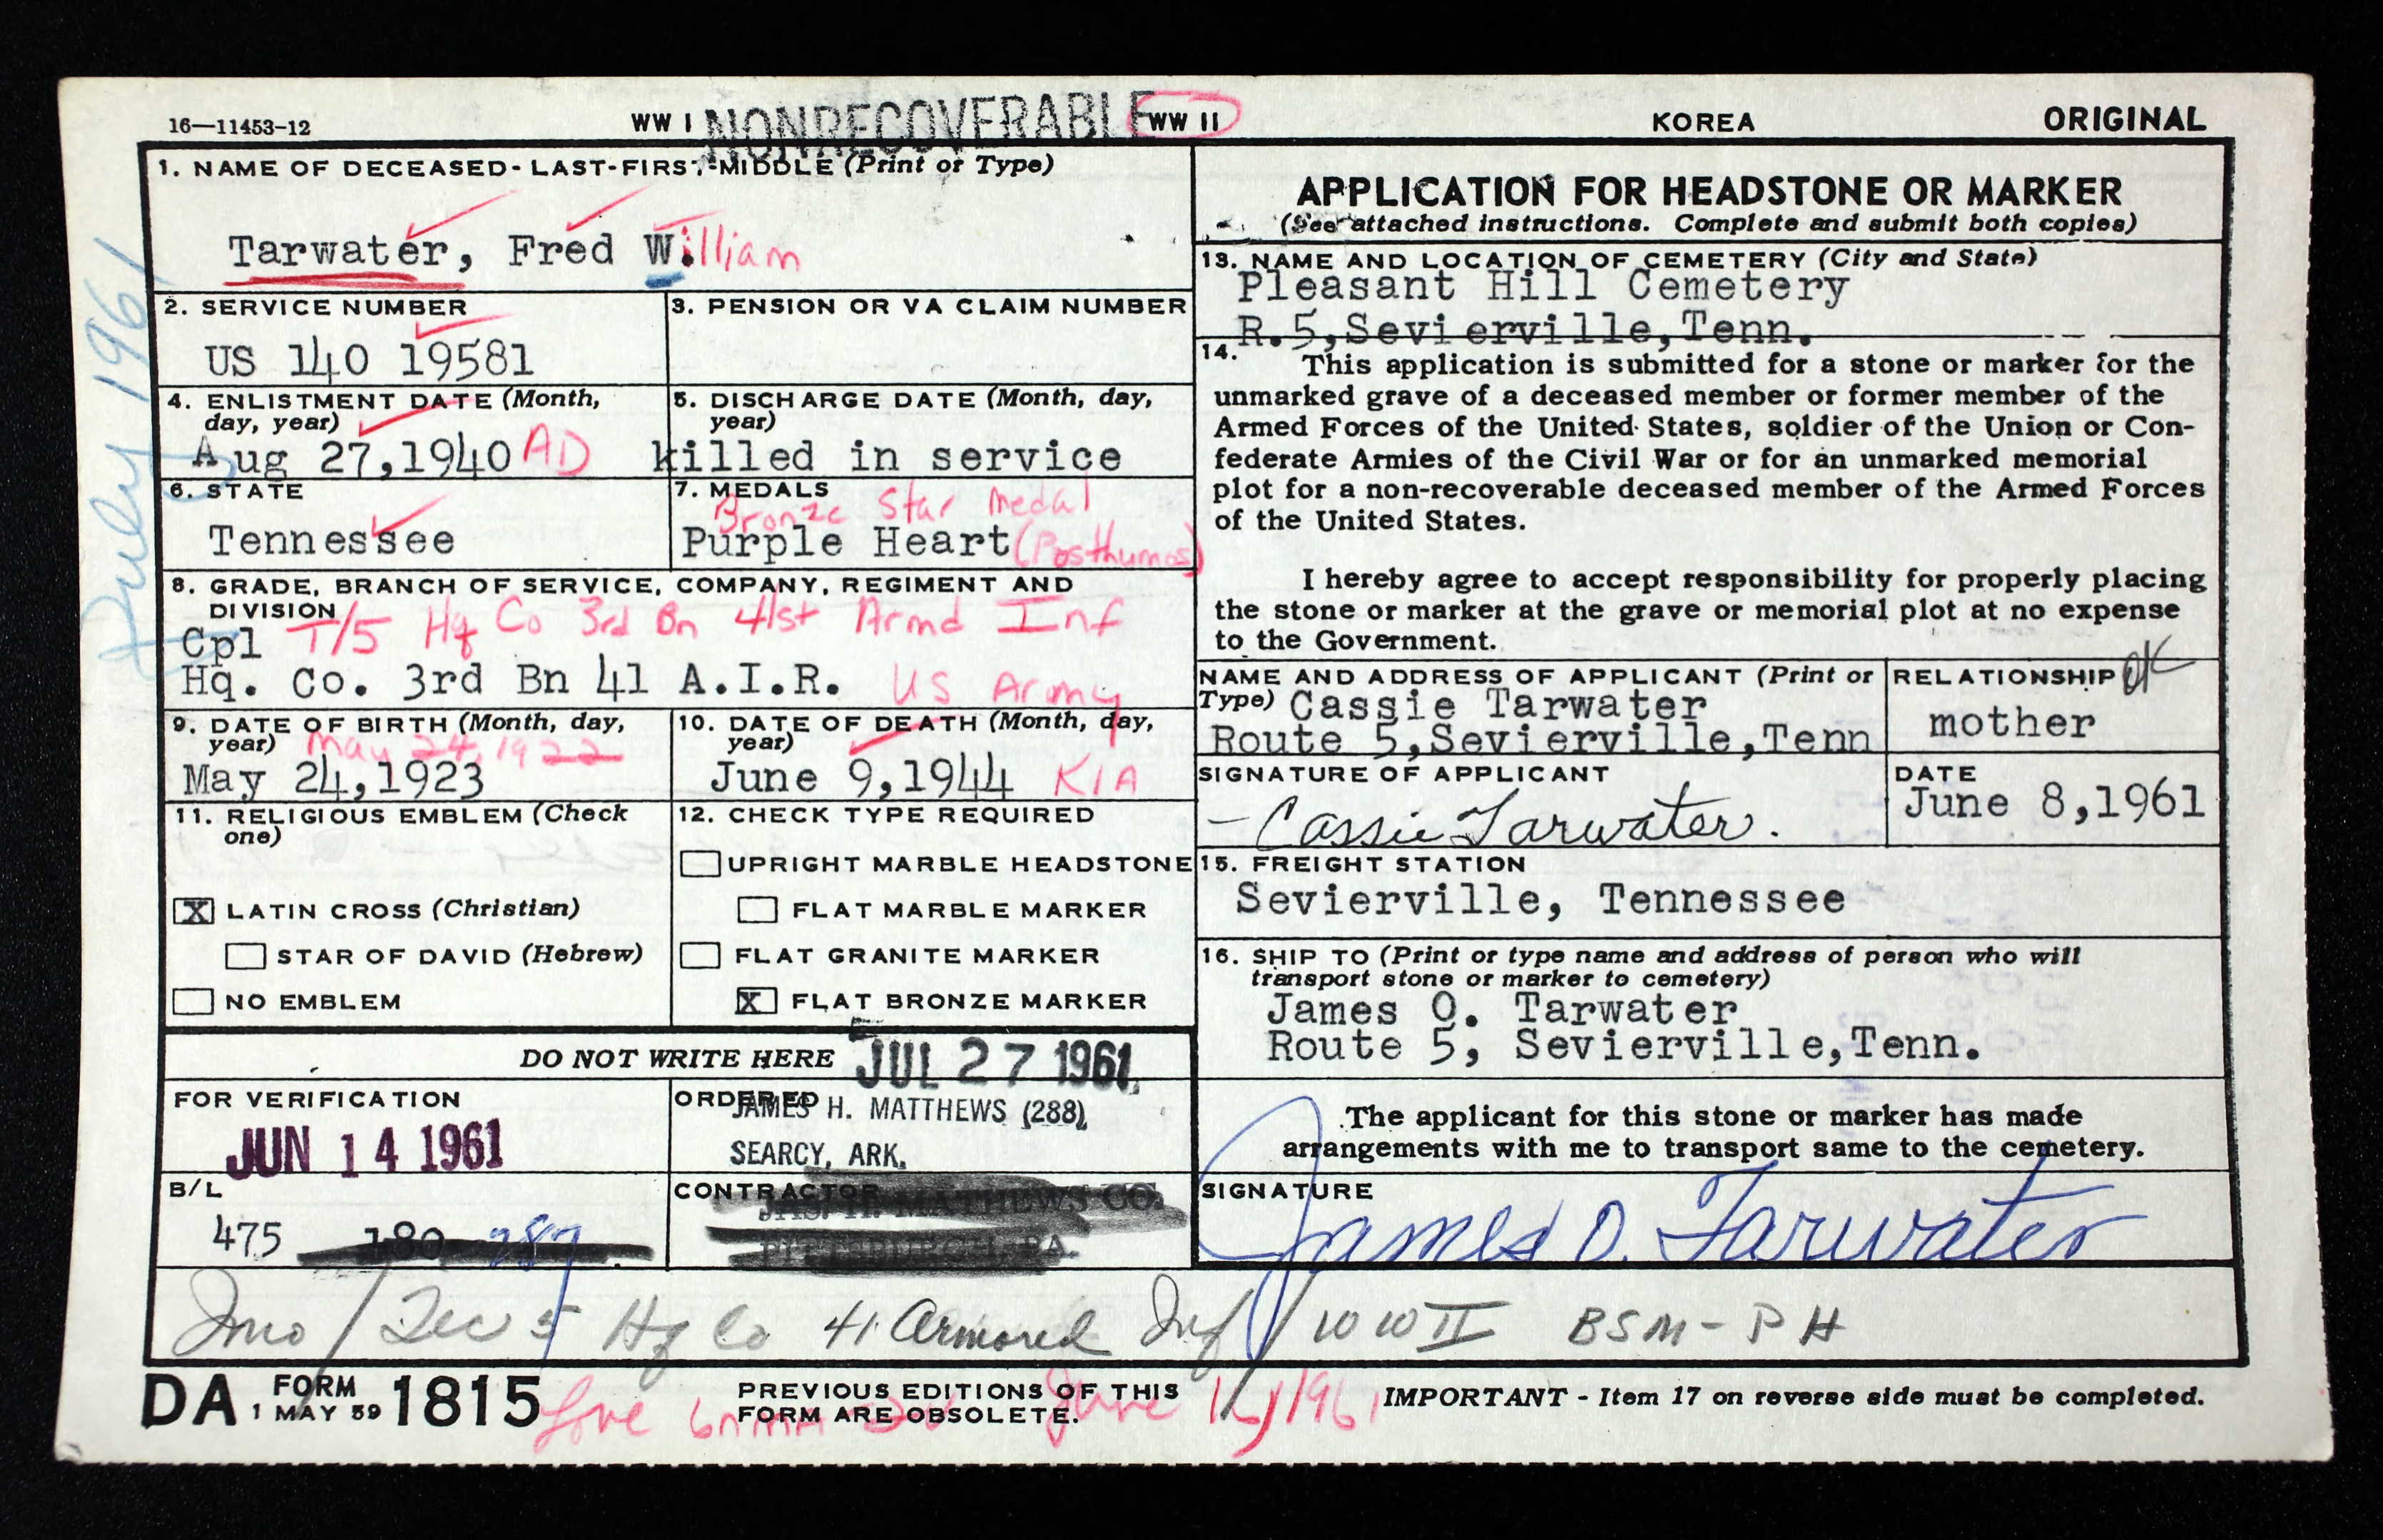 16—11453-12 WW I NONRECOVERABLE WW II KOREA ORIGINAL
July 1961
1. NAME OF DECEASED - LAST-FIRST-MIDDLE (Print or Type)
Tarwater, Fred William
2. SERVICE NUMBER
US 140 19581
3. PENSION OR VA CLAIM NUMBER
4. ENLISTMENT DATE (Month,
day, year)
Aug 27,1940 AD
5. DISCHARGE DATE (Month, day,
year)
killed in service
6. STATE
Tennessee
7. MEDALS
Bronze Star Medal
Purple Heart (Posthumos)
8. GRADE, BRANCH OF SERVICE, COMPANY, REGIMENT AND
DIVISION
T/5 Hq Co 3rd Bn 41st Armd Inf
Cpl
Hq. Co. 3rd Bn 41 A.I.R. US Army
9. DATE OF BIRTH (Month, day,
year)
May 24, 1922
May 24,1923
10. DATE OF DEATH (Month, day,
year)
June 9,1944 KIA
11. RELIGIOUS EMBLEM (Check
one)
X LATIN CROSS (Christian)
STAR OF DAVID (Hebrew)
NO EMBLEM
12. CHECK TYPE REQUIRED
UPRIGHT MARBLE HEADSTONE
FLAT MARBLE MARKER
FLAT GRANITE MARKER
X FLAT BRONZE MARKER
DO NOT WRITE HERE
JUL 27 1961
FOR VERIFICATION
JUN 14 1961
ORDERED
JAMES H. MATTHEWS (288)
SEARCY, ARK.
B/L
475 180 287
CONTRACTOR
JAS. H. MATTHEWS CO.
PITTSBURGH, PA.
APPLICATION FOR HEADSTONE OR MARKER
(See attached instructions. Complete and submit both copies)
13. NAME AND LOCATION OF CEMETERY (City and State)
Pleasant Hill Cemetery
R.5,Sevierville,Tenn.
14.
This application is submitted for a stone or marker for the
unmarked grave of a deceased member or former member of the
Armed Forces of the United States, soldier of the Union or Con-
federate Armies of the Civil War or for an unmarked memorial
plot for a non-recoverable deceased member of the Armed Forces
of the United States.
I hereby agree to accept responsibility for properly placing
the stone or marker at the grave or memorial plot at no expense
to the Government.
NAME AND ADDRESS OF APPLICANT (Print or
Type) Cassie Tarwater
Route 5,Sevierville,Tenn
RELATIONSHIP OK
mother
SIGNATURE OF APPLICANT
Cassie Tarwater.
DATE
June 8,1961
15. FREIGHT STATION
Sevierville, Tennessee
16. SHIP TO (Print or type name and address of person who will
transport stone or marker to cemetery)
James O. Tarwater
Route 5, Sevierville,Tenn.
The applicant for this stone or marker has made
arrangements with me to transport same to the cemetery.
SIGNATURE
James O. Tarwater
/ Tec 5 Hq Co 41 Armored Inf / WW II BSM - PH
DA FORM 1 MAY 59 1815
PREVIOUS EDITIONS OF THIS
FORM ARE OBSOLETE.
June 1961
IMPORTANT - Item 17 on reverse side must be completed.